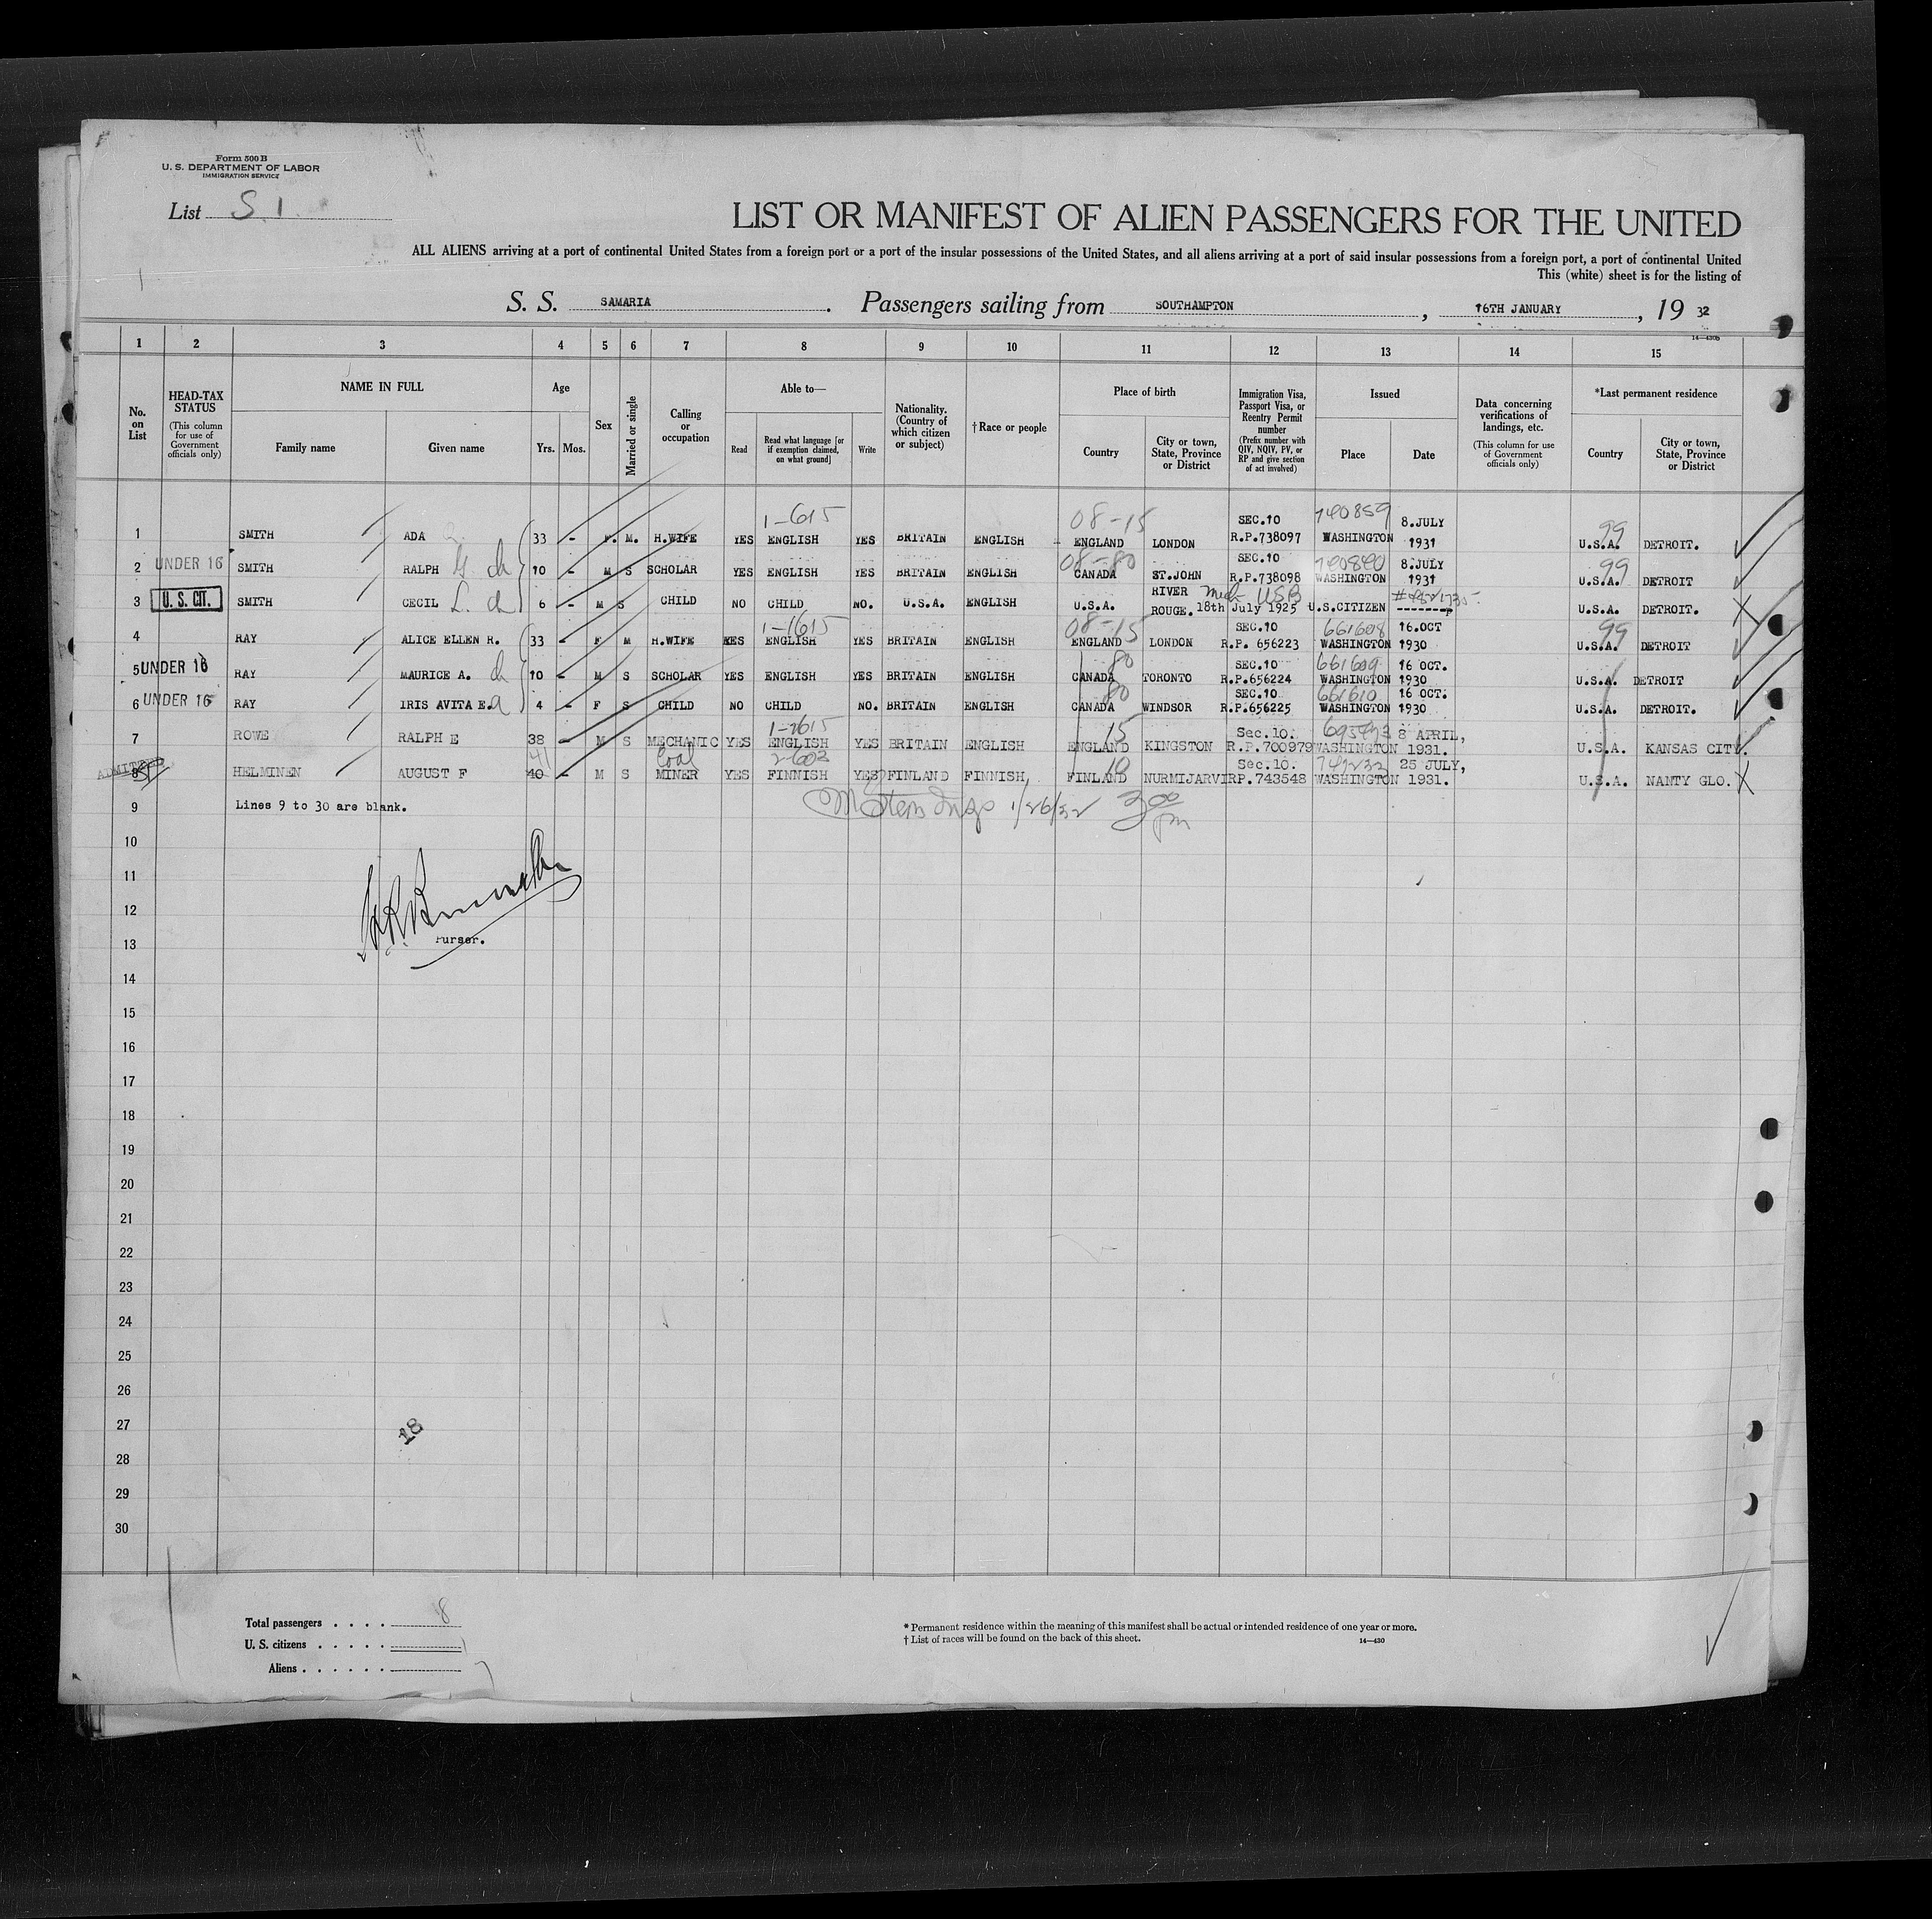 Form 500 B
U. S. DEPARTMENT OF LABOR
IMMIGRATION SERVICE
List S. 1
LIST OR MANIFEST OF ALIEN PASSENGERS FOR THE UNITED
ALL ALIENS arriving at a port of continental United States from a foreign port or a port of the insular possessions of the United States, and all aliens arriving at a port of said insular possessions from a foreign port, a port of continental United
This (white) sheet is for the listing of
S. S. SAMARIA. Passengers sailing from SOUTHAMPTON, 16TH JANUARY, 19 32
14—430B
1 2 3 4 5 6 7 8 9 10 11 12 13 14 15
No. on List
HEAD-TAX STATUS (This column for use of Government officials only)
NAME IN FULL
Family name Given name
Age
Yrs. Mos.
Sex
Married or single
Calling or occupation
Able to—
Read
Read what language [or if exemption claimed, on what ground]
Write
Nationality. (Country of which citizen or subject)
† Race or people
Place of birth
Country
City or town, State, Province or District
Immigration Visa, Passport Visa, or Reentry Permit number (Prefix number with QIV, NQIV, PV, or RP and give section of act involved)
Issued
Place Date
Data concerning verifications of landings, etc. (This column for use of Government officials only)
*Last permanent residence
Country
City or town, State, Province or District
1-615 08-15 SEC.10 740859 8.JULY 99
1 SMITH ADA 33 - F. M. H.WIFE YES ENGLISH YES BRITAIN ENGLISH ENGLAND LONDON R.P.738097 WASHINGTON 1931 U.S.A. DETROIT.
08-80 SEC.10 8.JULY 99
2 UNDER 16 SMITH RALPH G. ch 10 - M S SCHOLAR YES ENGLISH YES BRITAIN ENGLISH CANADA ST.JOHN R.P.738098 WASHINGTON 1931 U.S.A. DETROIT
3 U. S. CIT. SMITH CECIL L. ch 6 - M S CHILD NO CHILD NO. U.S.A. ENGLISH U.S.A. RIVER ROUGE. Mich USB 18th July 1925 U.S.CITIZEN ------- U.S.A. DETROIT.
1-1615 08-15 SEC.10 661608 16.OCT 99
4 RAY ALICE ELLEN R. 33 - F M H.WIFE YES ENGLISH YES BRITAIN ENGLISH ENGLAND LONDON R.P. 656223 WASHINGTON 1930 U.S.A. DETROIT
80 SEC.10 661609 16 OCT.
5 UNDER 16 RAY MAURICE A. ch 10 - M S SCHOLAR YES ENGLISH YES BRITAIN ENGLISH CANADA TORONTO R.P.656224 WASHINGTON 1930 U.S.A. DETROIT
80 SEC.10 661610 16 OCT.
6 UNDER 16 RAY IRIS AVITA E. 4 - F S CHILD NO CHILD NO. BRITAIN ENGLISH CANADA WINDSOR R.P.656225 WASHINGTON 1930 U.S.A. DETROIT.
15 Sec.10. 8 APRIL,
7 ROWE RALPH E 38 - M S MECHANIC YES ENGLISH YES BRITAIN ENGLISH ENGLAND KINGSTON R.P.700979 WASHINGTON 1931. U.S.A. KANSAS CITY.
41 Coal 2-603 10 Sec.10. 25 JULY,
ADMITTED 8 HELMINEN AUGUST F 40 - M S MINER YES FINNISH YES FINLAND FINNISH, FINLAND NURMIJARVI RP.743548 WASHINGTON 1931. U.S.A. NANTY GLO.
9 Lines 9 to 30 are blank. 1/26/32 3 00 pm
10
11
12
13 Purser.
14
15
16
17
18
19
20
21
22
23
24
25
26
27 18
28
29
30
Total passengers . . . . 8
U. S. citizens . . . . . 1
Aliens . . . . . . 7
* Permanent residence within the meaning of this manifest shall be actual or intended residence of one year or more.
† List of races will be found on the back of this sheet. 14—430